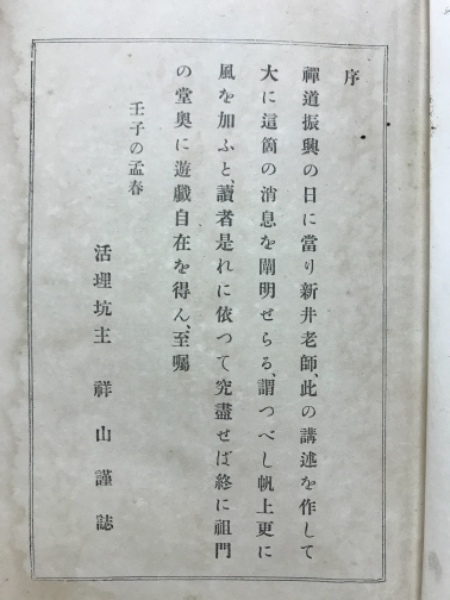 序
禪道振興の日に當り新井老師、此の講述を作して
大に這箇の消息を闡明せらる、謂つべし帆上更に
風を加ふと、讀者是れに依つて究盡せば終に祖門
の堂奧に遊戲自在を得ん、至囑
壬子の孟春
活理坑主 祥山謹誌